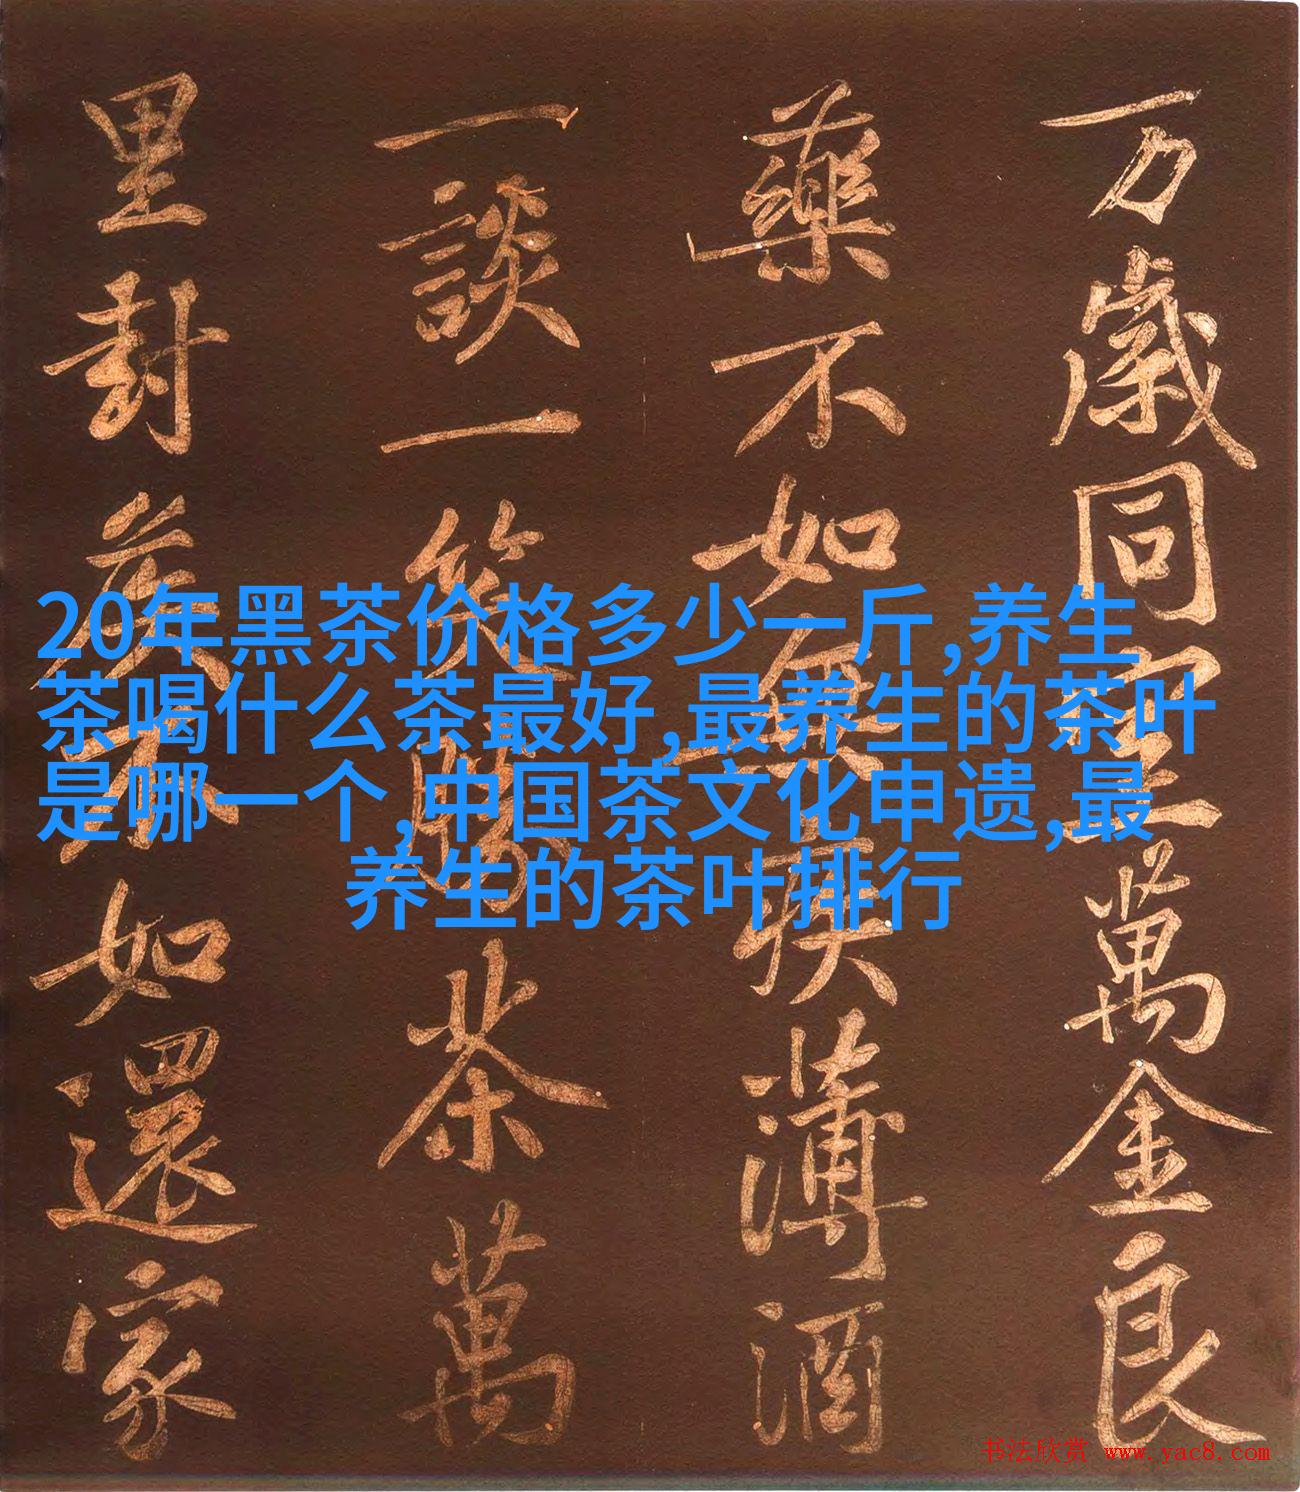 万歲同室萬金良
藥不如無疾薄酒
一談一笑勝茶萬
里封侯不如還家
20年黑茶价格多少一斤,养生
茶喝什么茶最好,最养生的茶叶
是哪一个,中国茶文化申遗,最
养生的茶叶排行
书法欣赏 www.yac8.com